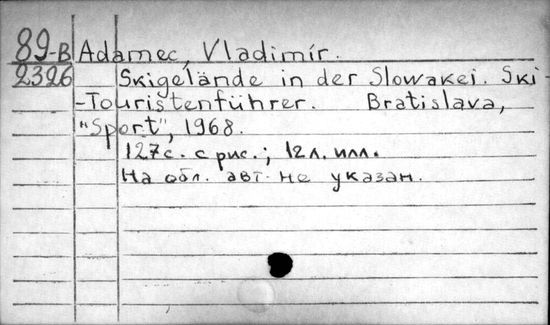 89-В Adamec, Vladimír.
2326 Skigelände in der Slowakei. Ski
-Touristenführer. Bratislava,
"Sport", 1968.
127с. с рис.; 12л. илл.
На обл. авт. не указан.